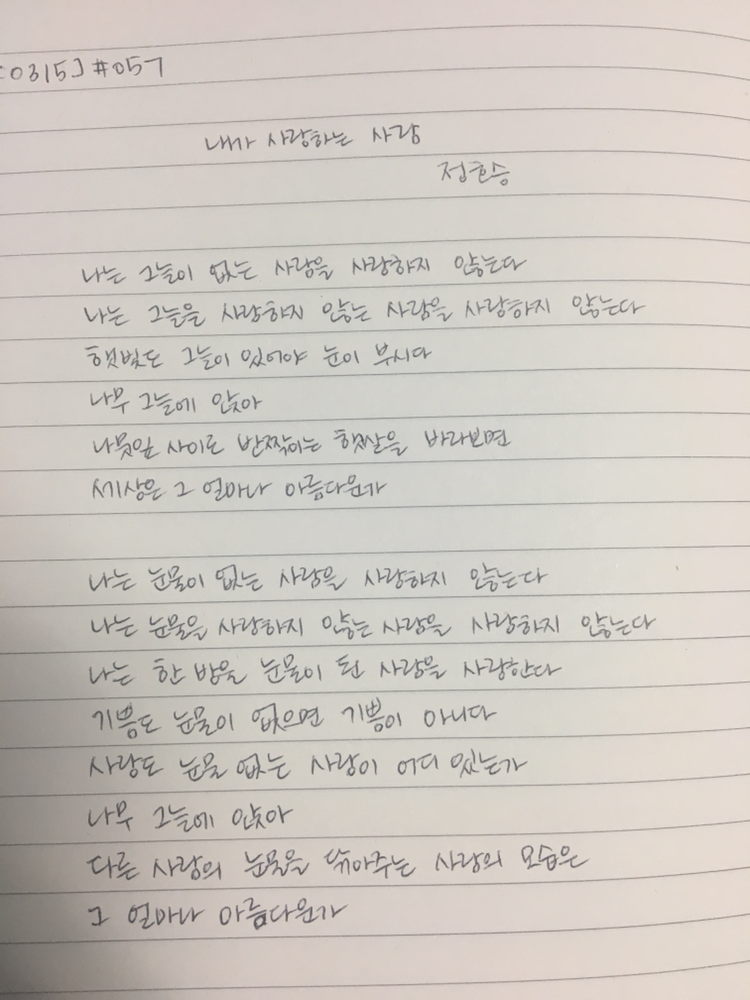 [0315] #057
내가 사랑하는 사람
정호승
나는 그늘이 없는 사람을 사랑하지 않는다
나는 그늘을 사랑하지 않는 사람을 사랑하지 않는다
햇빛도 그늘이 있어야 눈이 부시다
나무 그늘에 앉아
나뭇잎 사이로 반짝이는 햇살을 바라보면
세상은 그 얼마나 아름다운가
나는 눈물이 없는 사람을 사랑하지 않는다
나는 눈물을 사랑하지 않는 사람을 사랑하지 않는다
나는 한 방울 눈물이 된 사람을 사랑한다
기쁨도 눈물이 없으면 기쁨이 아니다
사랑도 눈물 없는 사랑이 어디 있는가
나무 그늘에 앉아
다른 사람의 눈물을 닦아주는 사람의 모습은
그 얼마나 아름다운가